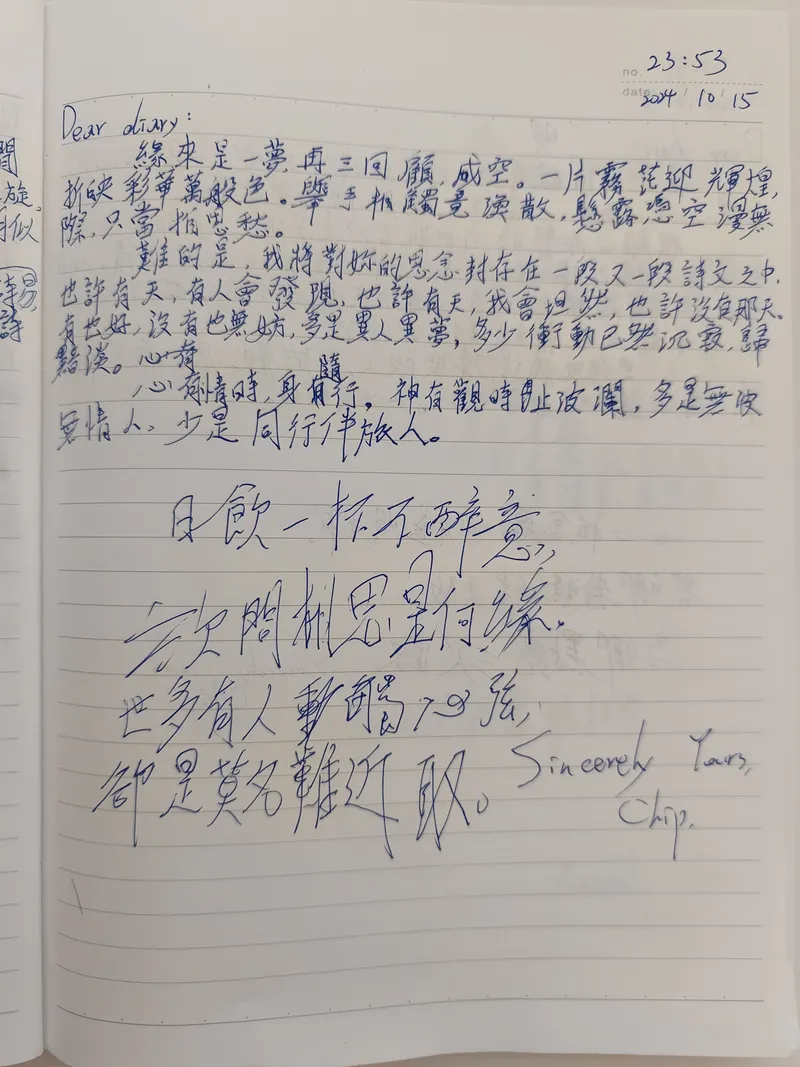 no. 23:53
date: 2024 / 10 / 15
Dear diary:
緣來是一夢,再三回顧,成空。一片霧茫迎輝煌,
折映彩華萬般色。舉手相觸竟渙散,懸露憑空漫無
際,只當捎思愁。
難的是,我將對妳的思念封存在一段又一段詩文之中,
也許有天,有人會發現,也許有天,我會坦然,也許沒有那天。
有也好,沒有也無妨,多是異人異夢,多少衝動已然沉寂,歸
黯淡。心有
心有情時,身有隨行。神有觀時自止波瀾,多是無波
無情人,少是同行伴旅人。
日飲一杯不醉意,
六次問相思是何緣。
世多有人動觸心弦,
卻是莫名難近取。
Sincerely Yours,
Chip.
間
旋。
相似
詩